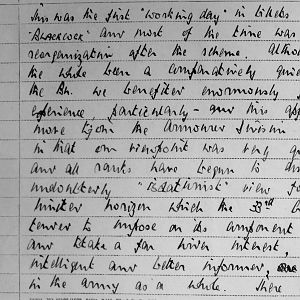 This was the first "working day" in billets
"BLACKCOCK" and most of the time was
reorganization after the scheme. Altho
the whole been a comparatively quie
the Bn. we benefited enormously f
experience, particularly - and this app
more to the Armoured Division
in that our viewpoint was very
and all ranks have begun to
undoubtedly view
horizon which the 33rd
tended to impose on its component
and a far wider interest,
intelligent and better informed,
in the army as a whole. There